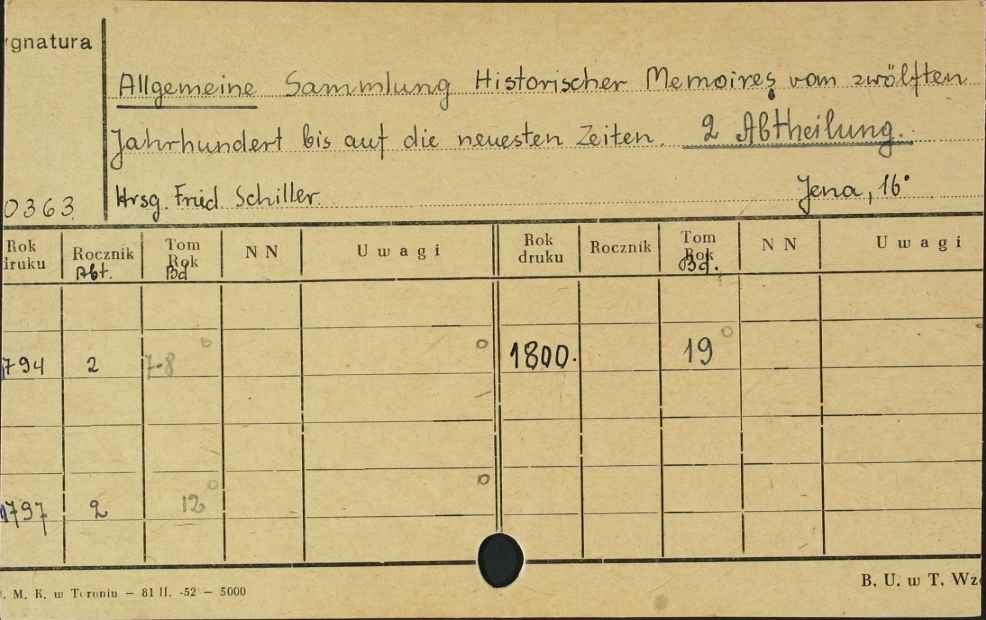 ygnatura
Allgemeine Sammlung Historischer Memoires vom zwölften
Jahrhundert bis auf die neuesten Zeiten. 2 Abtheilung.
Hrsg. Fried Schiller Jena, 16°
0363
Rok druku Rocznik Abt. Tom Rok Bd NN Uwagi Rok druku Rocznik Tom Rok Bd. NN Uwagi
1794 2 7-8 1800. 19
1797 2 12
M. K. w Toruniu — 81 II. -52 — 5000
B. U. w T. Wzó